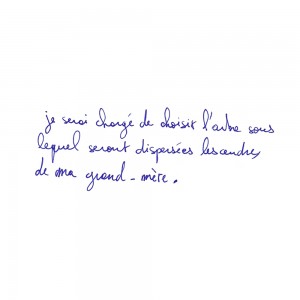 je serai chargé de choisir l'arbre sous
lequel seront dispersées les cendres
de ma grand-mère.